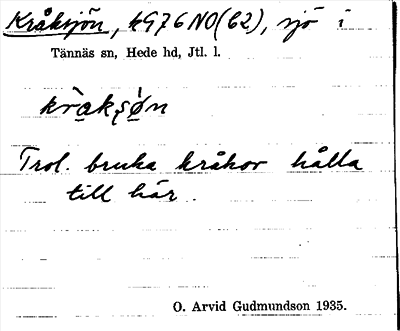 Kråksjön, k976NO(62), sjö i
Tännäs sn, Hede hd, Jtl. l.
Trol. bruka kråkor hålla
till här.
O. Arvid Gudmundson 1935.